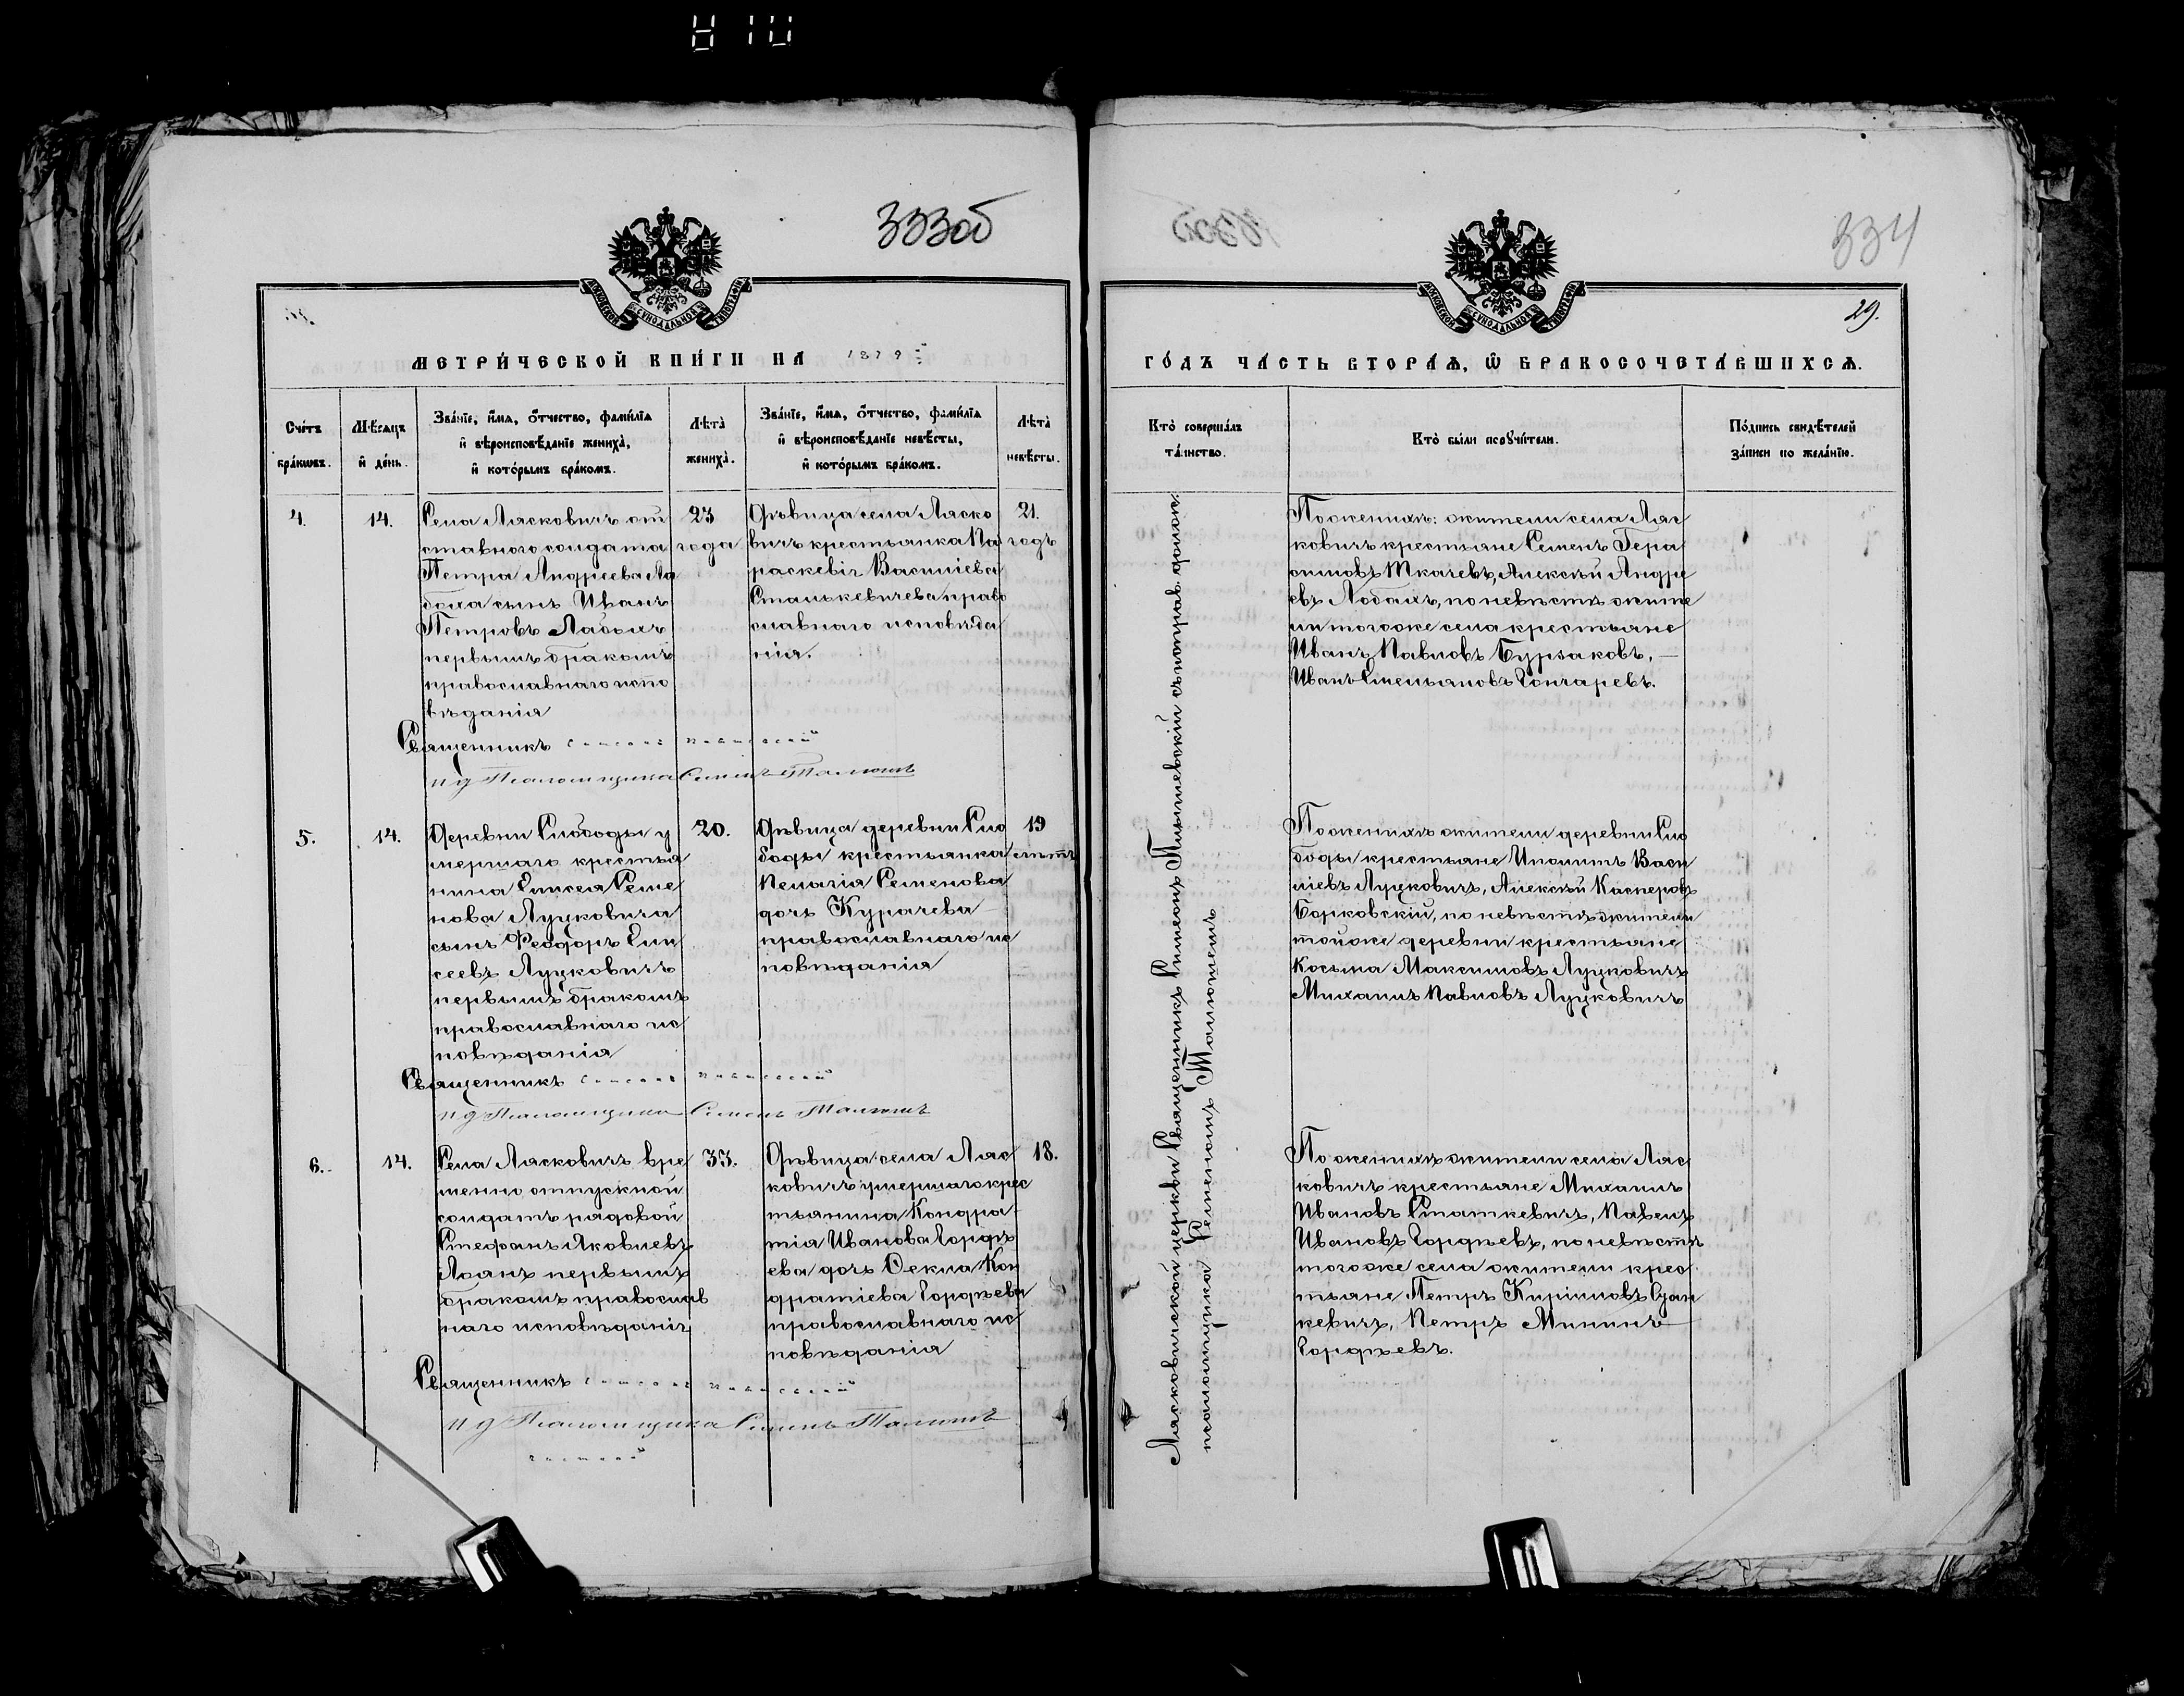 333об
334
29.
МОСКОВСКОЙ СУНОДАЛЬНОЙ ТИПОГРАФІИ
МЕТРИ́ЧЕСКОЙ КНИ́ГИ НА 1879й
МОСКОВСКОЙ СУНОДАЛЬНОЙ ТИПОГРАФІИ
ГО́ДЪ ЧА́СТЬ ВТОРА́Ѧ, Ѽ БРАКОСОЧЕТА́ВШИХСѦ.
Сче́тъ бра́кѡвъ.
Мѣ́сѧцъ и҆ де́нь.
Зва́нїе, и҆́мѧ, ѻ҆́тчество, фами́лїѧ
и҆ вѣроисповѣ́данїе жениха̀,
и҆ кото́рымъ бра́комъ.
Лѣ́та̀ жениха̀.
Зва́нїе, и҆́мѧ, ѻ҆́тчество, фами́лїѧ
и҆ вѣроисповѣ́данїе невѣ́сты,
и҆ кото́рымъ бра́комъ.
Лѣ́та̀ невѣ́сты.
Кто̀ соверша́лъ
та́инство.
Кто̀ бы́ли порꙋчи́тели.
По́дпись свидѣ́телей
за́писи по жела́нїю.
4.
14.
Села Лясковичъ от
ставного солдата
Петра Андреева Ло
баха сынъ Иванъ
Петровъ Лабахъ
первымъ бракомъ
православнаго испо
вѣданія
23
года
Дѣвица села Ляско
вичъ крестьянка Па
раскевія Василіева
Станькевичева право
славнаго исповѣда
нія.
21.
годъ
По женихѣ: жители села Ляс
ковичъ крестьяне Семенъ Гера
симовъ Ткачевъ, Алексѣй Андре
евъ Лобахъ, по невѣстѣ жите
ли тогоже села крестьяне
Иванъ Павловъ Бурзаковъ, —
Иванъ Емельяновъ Гончаревъ.
Священникъ
и д Псаломщика Семенъ
5.
14.
Деревни Слободы у
мершаго крестья
нина Елисея Семе
нова Луцковича
сынъ Феодоръ Ели
сеевъ Луцковичъ
первымъ бракомъ
православнаго ис
повѣданія
20.
Дѣвица деревни Сло
боды крестьянка
Пелагія Семенова
дочь Курачева
православнаго ис
повѣданія
19
лѣтъ
По женихѣ жители деревни Сло
боды крестьяне Иполитъ Васи
ліевъ Луцковичъ, Алексѣй Касперовъ
Борковскій, по невѣстѣ жители
тойже деревни крестьяне
Косьма Максимовъ Луцковичъ
Михаилъ Павловъ Луцковичъ
Священникъ
и д Псаломщика Семенъ
6.
14.
Села Лясковичъ вре
менно отпускной
солдатъ рядовой
Стефанъ Яковлевъ
первымъ
бракомъ православ
наго исповѣданія
33.
Дѣвица села Ляс
ковичъ умершаго крес
тьянина Кондра-
тія Иванова Гордѣ
ева дочь Ѳекла Кон
дратіева Гордѣева
православнаго ис
повѣданія
18.
По женихѣ жители села Ляс
ковичъ крестьяне Михаилъ
Ивановъ Статкевичъ, Павелъ
Ивановъ Гордѣевъ, по невѣстѣ
тогоже села жители крес
тьяне Петръ Кириловъ
кевичъ, Петръ Мининъ
Гордѣевъ.
Священникъ
и д Псаломщика Семенъ
Лясковичской церкви Священникъ Симеонъ съ исправ. должн.
псаломщика Семеномъ